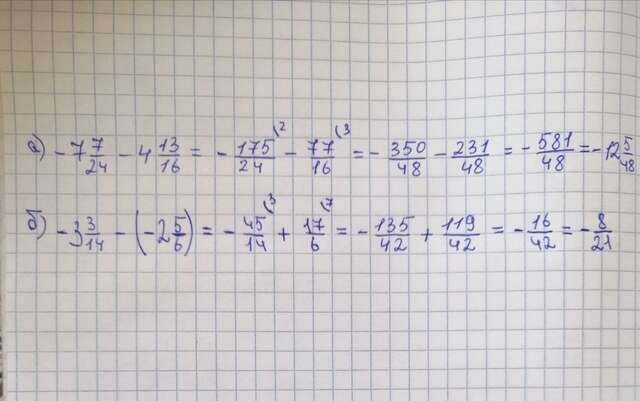 а) -7 7/24 - 4 13/16 = - 175/24 (2 - 77/16 (3 = - 350/48 - 231/48 = - 581/48 = -12 5/48
б) -3 3/14 - (-2 5/6) = - 45/14 (3 + 17/6 (7 = - 135/42 + 119/42 = - 16/42 = - 8/21